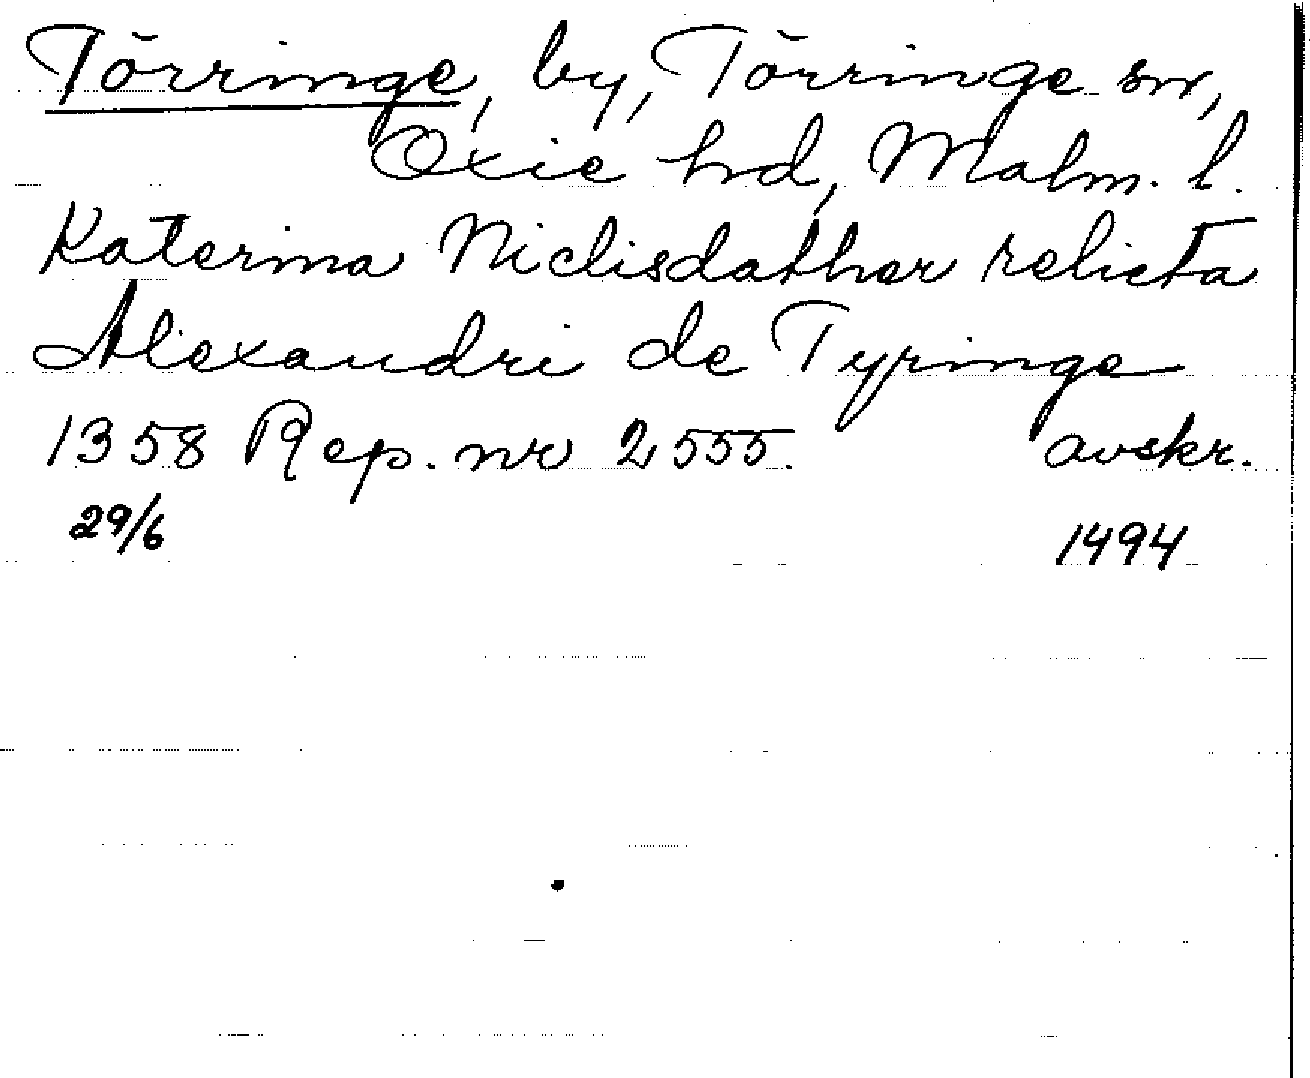 Törringe, by, Törringe sn,
Oxie hd, Malm. l.
Katerina Niclisdather relicta
Alexandri de Tyringe
1358 Rep. nr 2555. avskr.
29/6 1494